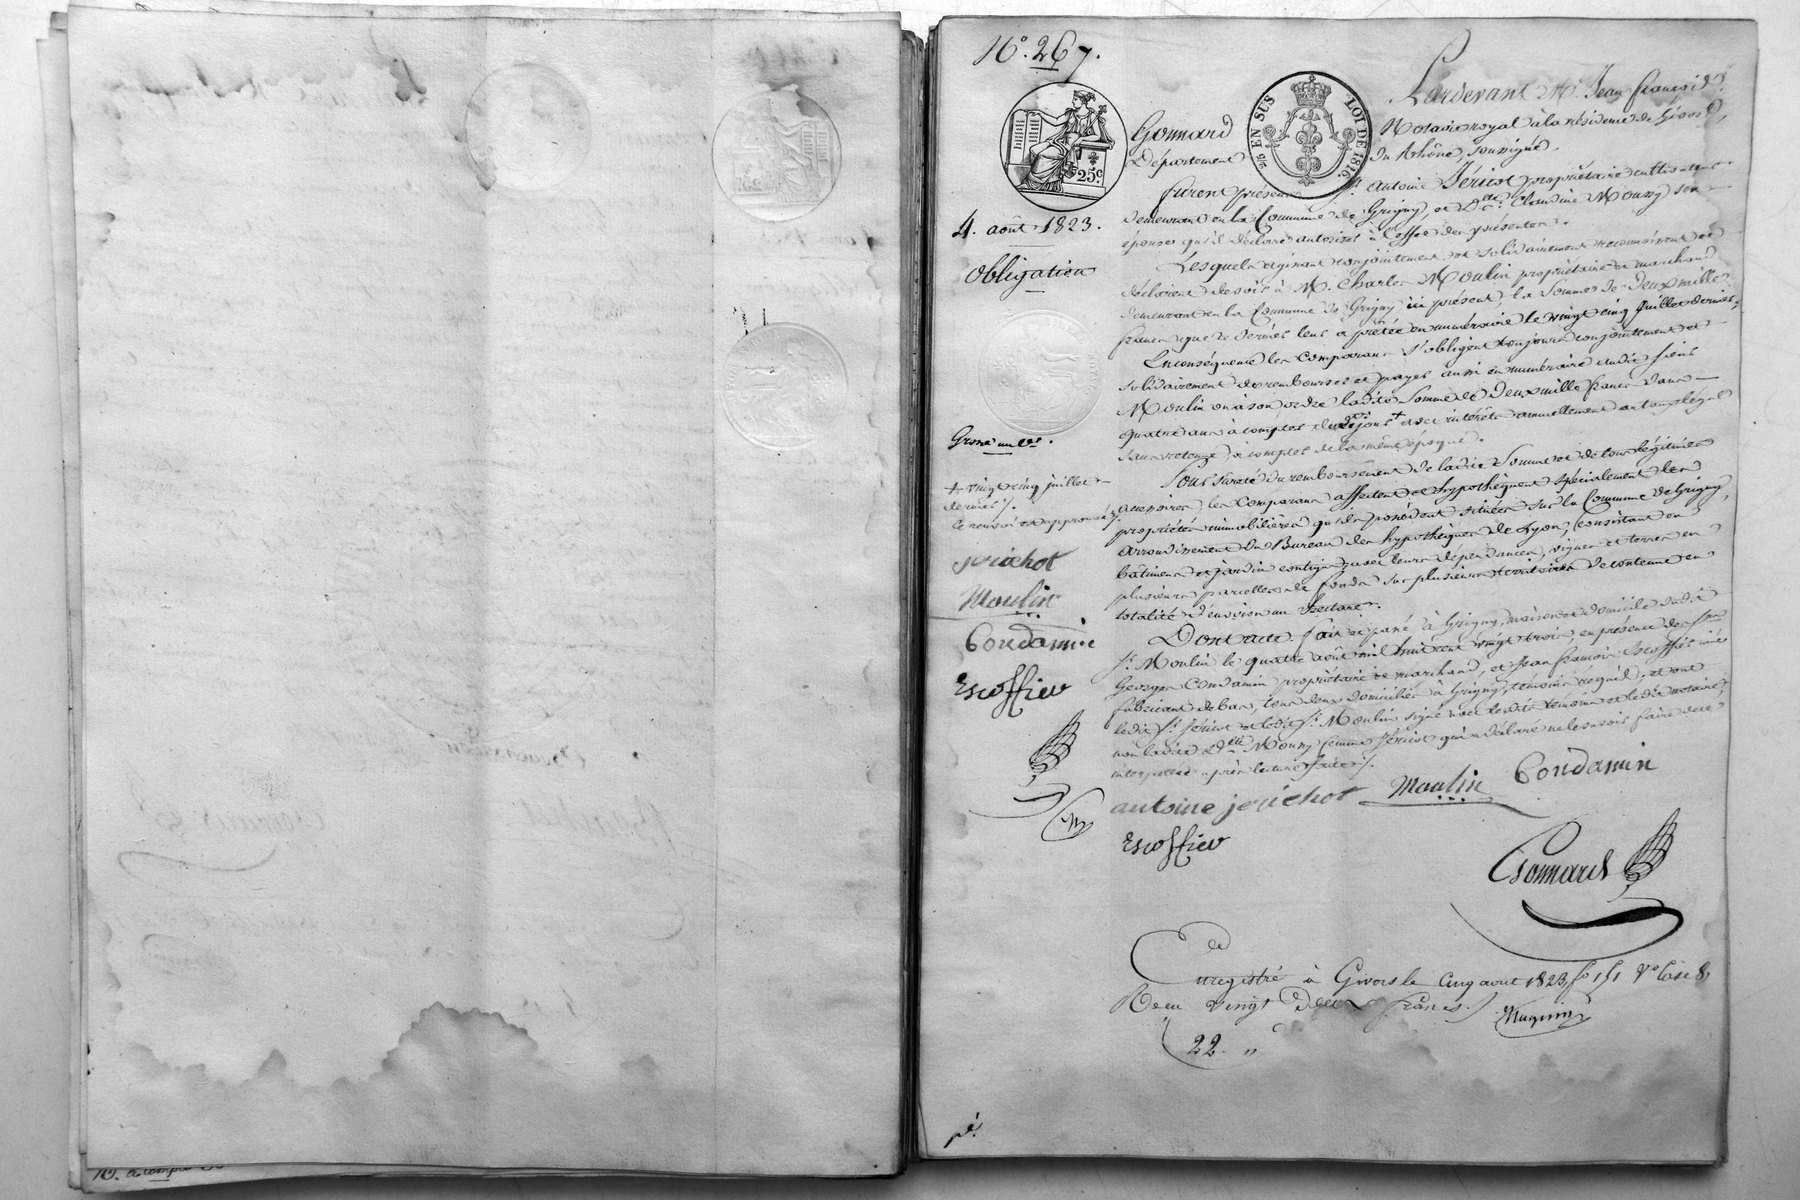 N.° 267.
Pardevant M.e Jean François
Gonnard Notaire royal à la résidence de Givors,
Département du Rhône, soussigné.
25 EN SUS LOI DE 1816
25c
4. août 1823.
Obligation
Grosse
+ vingt cinq juillet
dernier /.
le renvoi est approuvé /.
jerichot
Moulin
Condamin
Escoffier
Furent présens S.r Antoine Jéricot propriétaire cultivateur
demeurant en la Commune de Grigny, et D.e Claudine Moury son
épouse qu'il déclare autoriser à l'effet des présentes.
Lesquels agissant conjointement et solidairement reconnaissent et
déclarent devoir à M. Charles Moulin propriétaire et marchand
demeurant en la Commune de Grigny ici présent, la somme de deux mille
francs que ce dernier leur a prêtée en numéraire le vingt cinq juillet dernier,
En conséquence les Comparans s'obligent toujours conjointement et
solidairement de rembourser et payer aussi en numéraire audit sieur
Moulin ou à son ordre ladite somme de deux mille francs dans
quatre ans à compter du + avec intérêts annuellement au taux légal
sans retenue, à compter de la même époque.
Pour sûreté du remboursement de ladite somme et de tous légitimes
accessoires, les Comparans affectent et hypothèquent spécialement les
propriétés immobilières qu'ils possèdent situées sur la Commune de Grigny,
arrondissement du Bureau des hypothèques de Lyon, consistant en
bâtimens et jardin contigus avec leurs dépendances, vignes et terres en
plusieurs parcelles de fonds sur plusieurs territoires de contenue en
totalité d'environ un hectare.
Dont acte. fait et passé à Grigny, maison et domicile dudit
S.r Moulin le quatre août mil huit cent vingt trois, en présence de S.rs
Georges Condamin propriétaire et marchand, et Jean François Escoffier
fabricant de bas, tous deux domiciliés à Grigny, témoins requis, et ont
ledit S.r Jéricot et ledit S.r Moulin signé avec lesdits témoins et ledit notaire,
non ladite D.e Moury femme Jéricot qui a déclaré ne le savoir faire de ce
interpellée après lecture faite /.
antoine jerichot Moulin Condamin
Escoffier
Gonnard
Enregistré à Givors le cinq aout 1823 f.o 151 V.o Case 8
Reçu vingt deux francs.
22 "